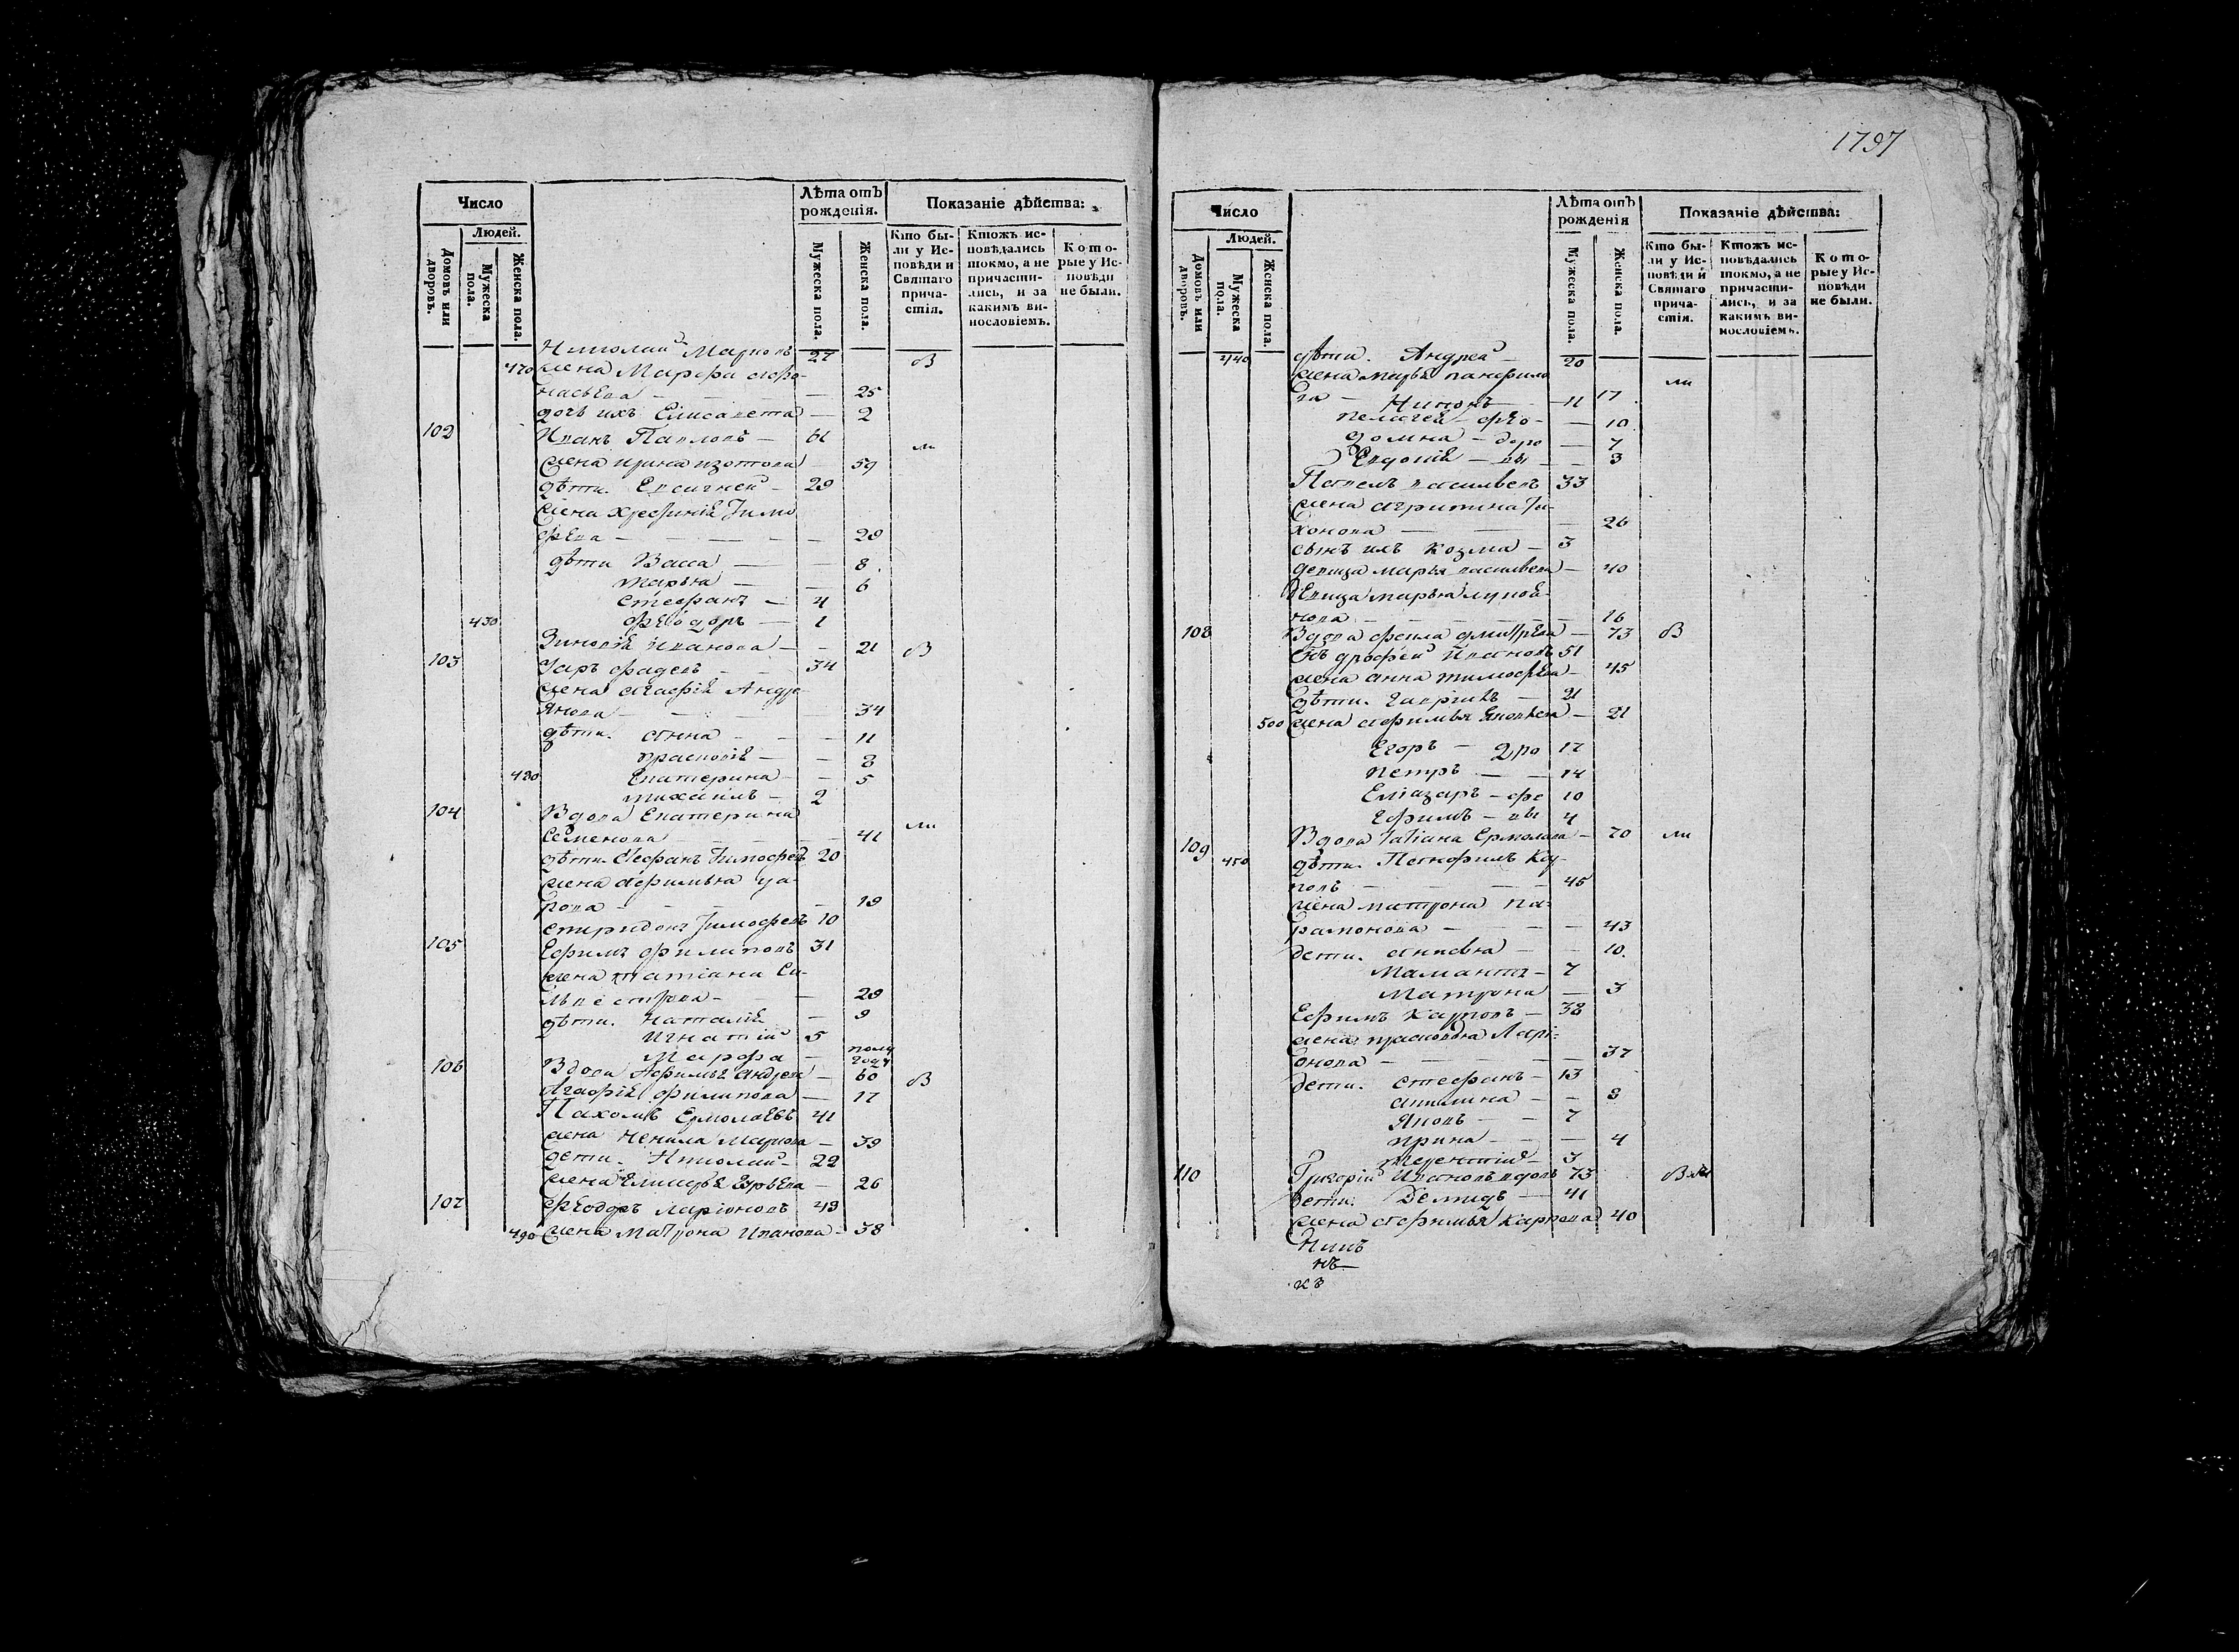 1797
Число
Лѣта отъ рожденія.
Показаніе дѣйства:
Людей.
Домовъ или дворовъ.
Мужеска пола.
Женска пола.
Мужеска пола.
Женска пола.
Кто были у Исповѣди и Святаго причастія.
Ктожъ исповѣдались токмо, а не причастились, и за какимъ винословіемъ.
Которые у Исповѣди не были.
Николай Марковъ 27
470 жена Марфа Афо-
насьева — 25
дочь ихъ Елисавета — 2
102 Иванъ Павловъ — 61
жена ирина изотова 59
дѣти. Евсигней — 29
жена хресинія Тимо
фѣева — 29
дѣти Васса — 8
марья — 6
стефанъ — 4
430 фѣодоръ — 1
Зиновія иванова — 21 в
103 Уаръ фадевъ — 34
жена агафія Андре
янова — 34
дѣти. анна — 11
прасковія — 8
480 Екатерина — 5
михаилъ — 2
104 Вдова Екатерина
Семенова — 41
дѣти. Стефанъ Тимофевъ 20
жена Афимья ува-
рова — 19
спиридонъ Тимофевъ 10
105 Ефимъ филиповъ 31
жена татіана Си-
львестрова — 29
дѣти. наталія — 9
игнатій 5
Марфа — полу году
106 Вдова Афимья андрева — 60 в
Агафія филипова — 17
Пахомъ Ермолаевъ 41
жена Ненила Маркова — 39
дети. Николай — 22
жена 26
107 фѣодоръ ларіоновъ 43
490 жена матрона Иванова — 38
Число
Лѣта отъ рожденія
Показаніе дѣйства:
Людей.
Домовъ или дворовъ.
Мужеска пола.
Женска пола.
Мужеска пола.
Женска пола.
Кто были у Исповѣди и Святаго причастія.
Ктожъ исповѣдались токмо, а не причастились, и за какимъ винословіемъ.
Которые у Исповѣди не были.
440 дѣти. Андрей — 20
жена марья панфило
ва — 17
Никонъ — 11
пелагея — фѣо — 10
домна — доро — 7
Евдокія — вы — 3
Павелъ васильевъ 33
жена агрипина Ти-
хонова — 26
сынъ ихъ козма — 3
девица марья васильева — 40
дѣвица марья лупой-
нова — 16
108 Вдова фекла дмитрева — 73 в
дрофей Ивановъ 51
жена анна тимофѣева — 45
дѣти. гавріилъ — 21
500 жена афимья Яковлева — 21
Егоръ — 2ро 17
петръ — 14
Еліазаръ — фе 10
Ефимъ — вы 4
109 Вдова Татіана Ермолаева — 70
450 дѣти. Панфилъ Кар-
повъ — 45
жена матрона па-
рамонова — 43
дети. 10
Мамантъ — 7
Матрона — 3
Ефимъ Карповъ — 38
жена прасковья Ларі-
онова — 37
дети. стефанъ — 13
акилина — 8
Яковъ — 7
ирина — 4
терентій — 3
110 Григорій Ивановъ вдовъ 73
дети. Демидъ — 41
жена афимья карпова 40